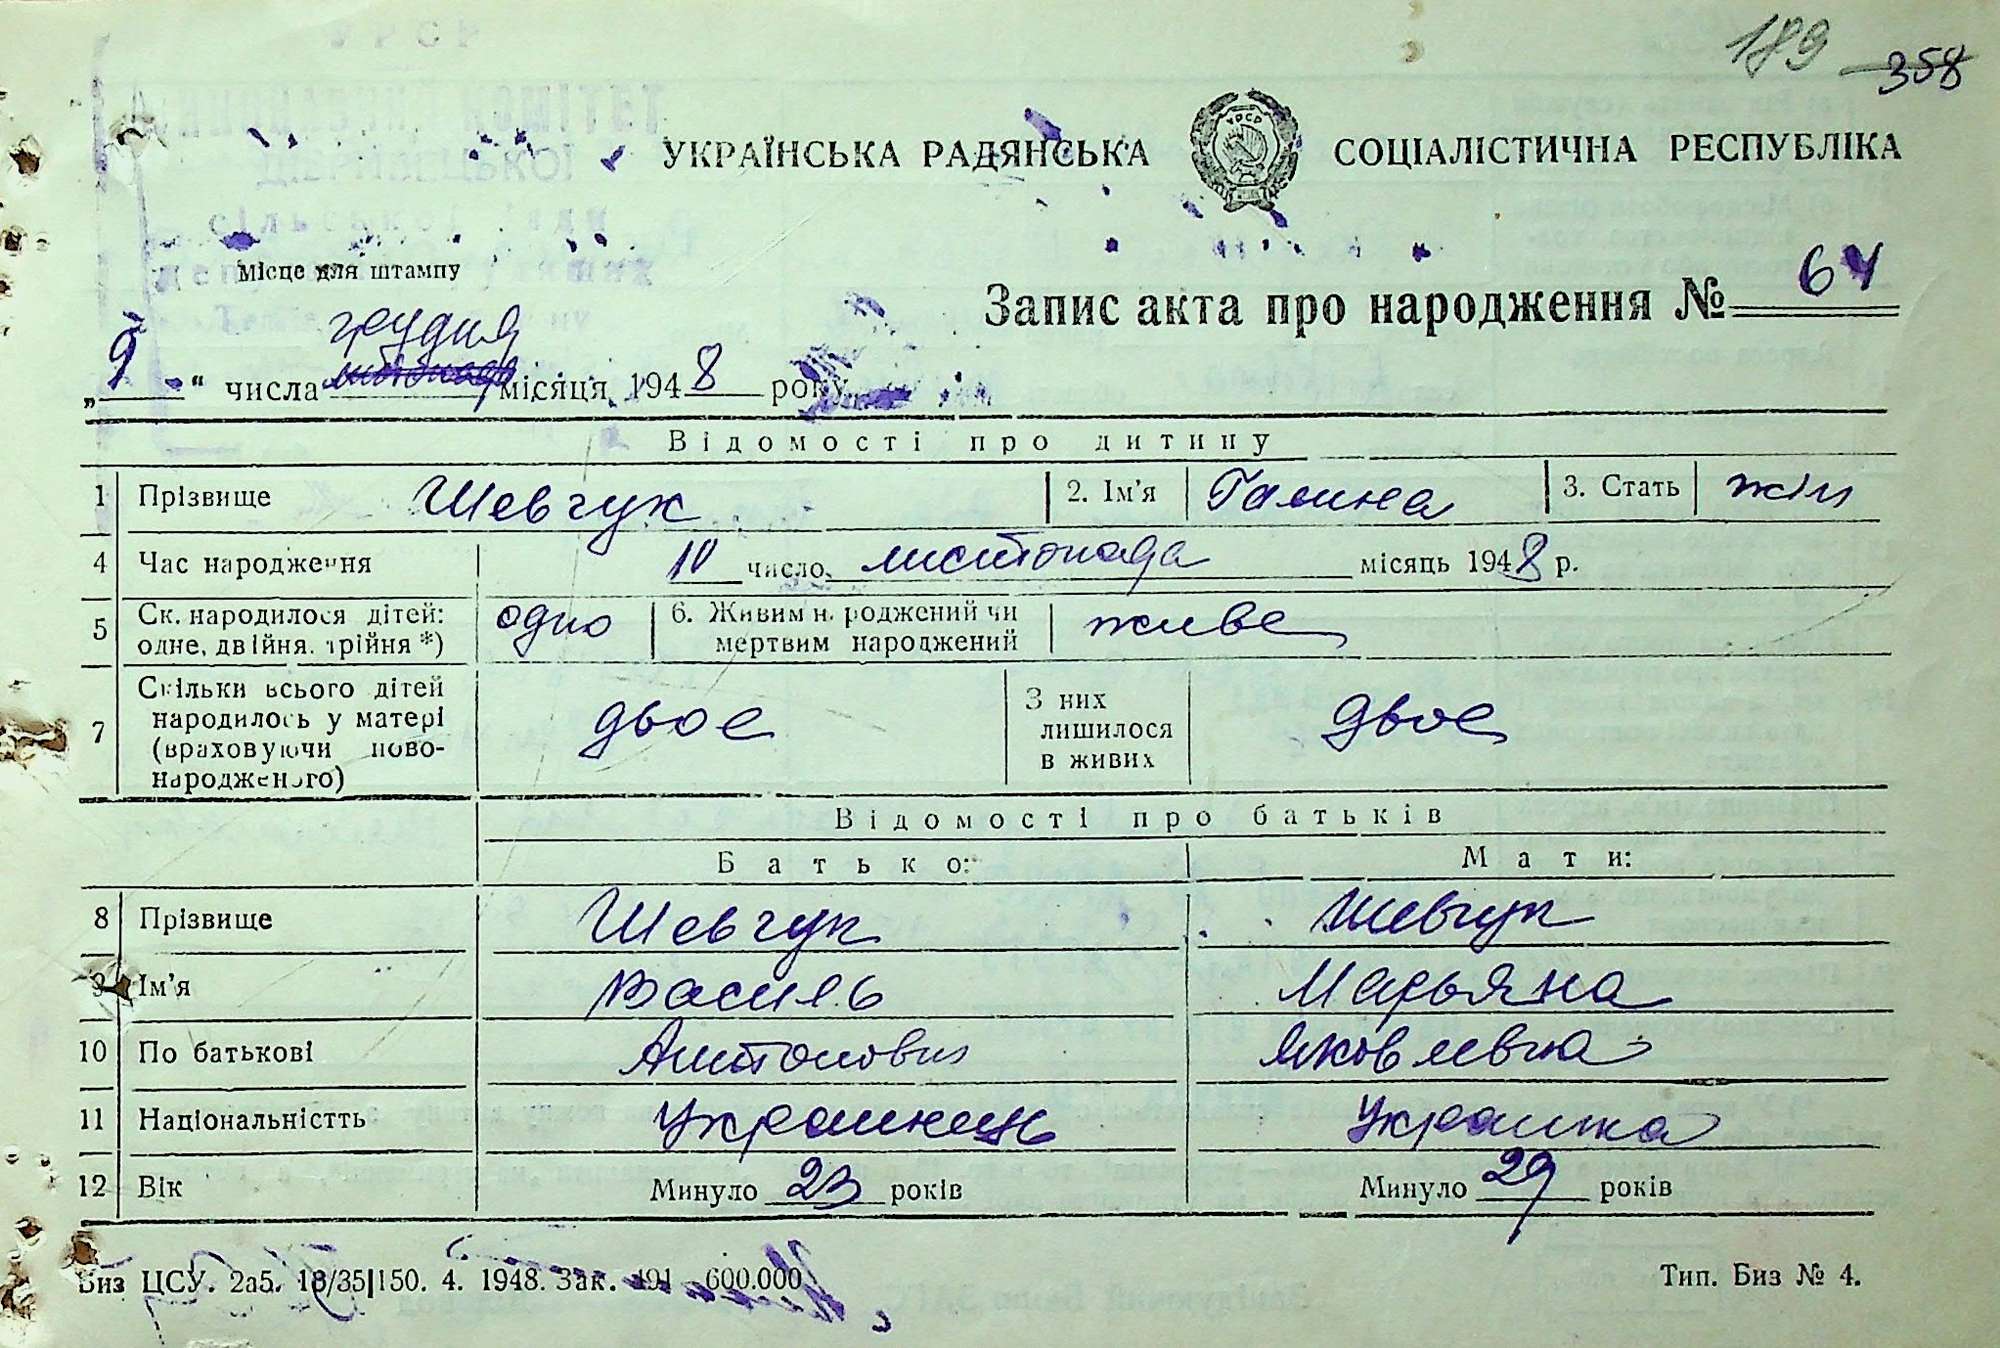 189 358
УКРАЇНСЬКА РАДЯНСЬКА СОЦІАЛІСТИЧНА РЕСПУБЛІКА
УРСР
Місце для штампу
Запис акта про народження № 64
грудня
„9“ числа листопада місяця 1948 року
Відомості про дитину
1 Прізвище Шевчук 2. Ім'я Галина 3. Стать жін
4 Час народження 10 число листопада місяць 1948 р.
5 Ск. народилося дітей: одно 6. Живим народжений чи живе
одне, двійня, трійня *) мертвим народжений
7 Скільки всього дітей двоє З них двоє
народилось у матері лишилося
(враховуючи ново- в живих
народженого)
Відомості про батьків
Батько: Мати:
8 Прізвище Шевчук Шевчук
9 Ім'я Василь Марьяна
10 По батькові Антонович Яковлевна
11 Національністть Украинець Украинка
12 Вік Минуло 23 років Минуло 29 років
Биз ЦСУ. 2а5. 18/35|150. 4. 1948. Зак. 491 600.000 Тип. Биз № 4.